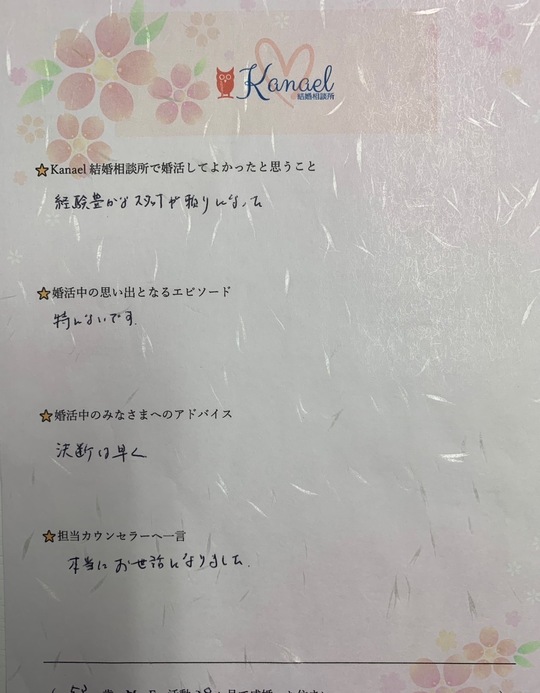 Kanael
結婚相談所
Kanael 結婚相談所で婚活してよかったと思うこと
経験豊かなスタッフが頼りになった
婚活中の思い出となるエピソード
特にないです.
婚活中のみなさまへのアドバイス
決断は早く
担当カウンセラーへ一言
本当にお世話になりました.